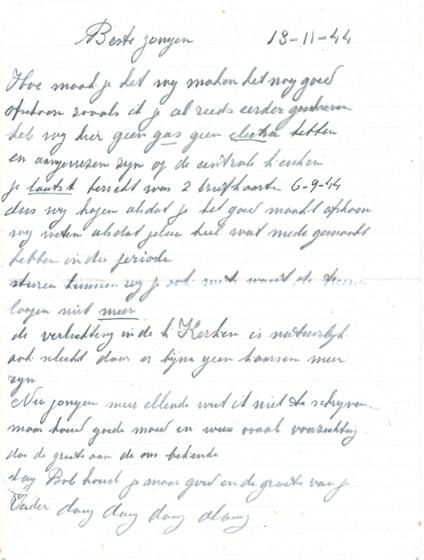 Beste jongen 13-11-44
Hoe maak je het wy maken het nog goed
ofschoon zooals ik je al reeds eerder geschreven
heb wy hier geen gas geen electra hebben
en aangewezen zyn op de centrale keuken
je laatste bericht was 2 briefkaarten 6-9-44
dus wy hopen alsdat je het goed maakt ofschoon
wy weten alsdat jelui heel wat mede gemaakt
hebben in die periode
sturen kunnen wy je ook niets want de
loopen niet meer
de verlichting in de Kerken is natuurlyk
ook slecht daar er byna geen kaarsen meer
zyn
Nu jongen meer ellende weet ik niet te schryven
maar houd goede moed en wees vooral voorzichtig
doe de groete aan de ons bekende
dag Bob houd je maar goed en de groete van je
Vader dag dag dag dag